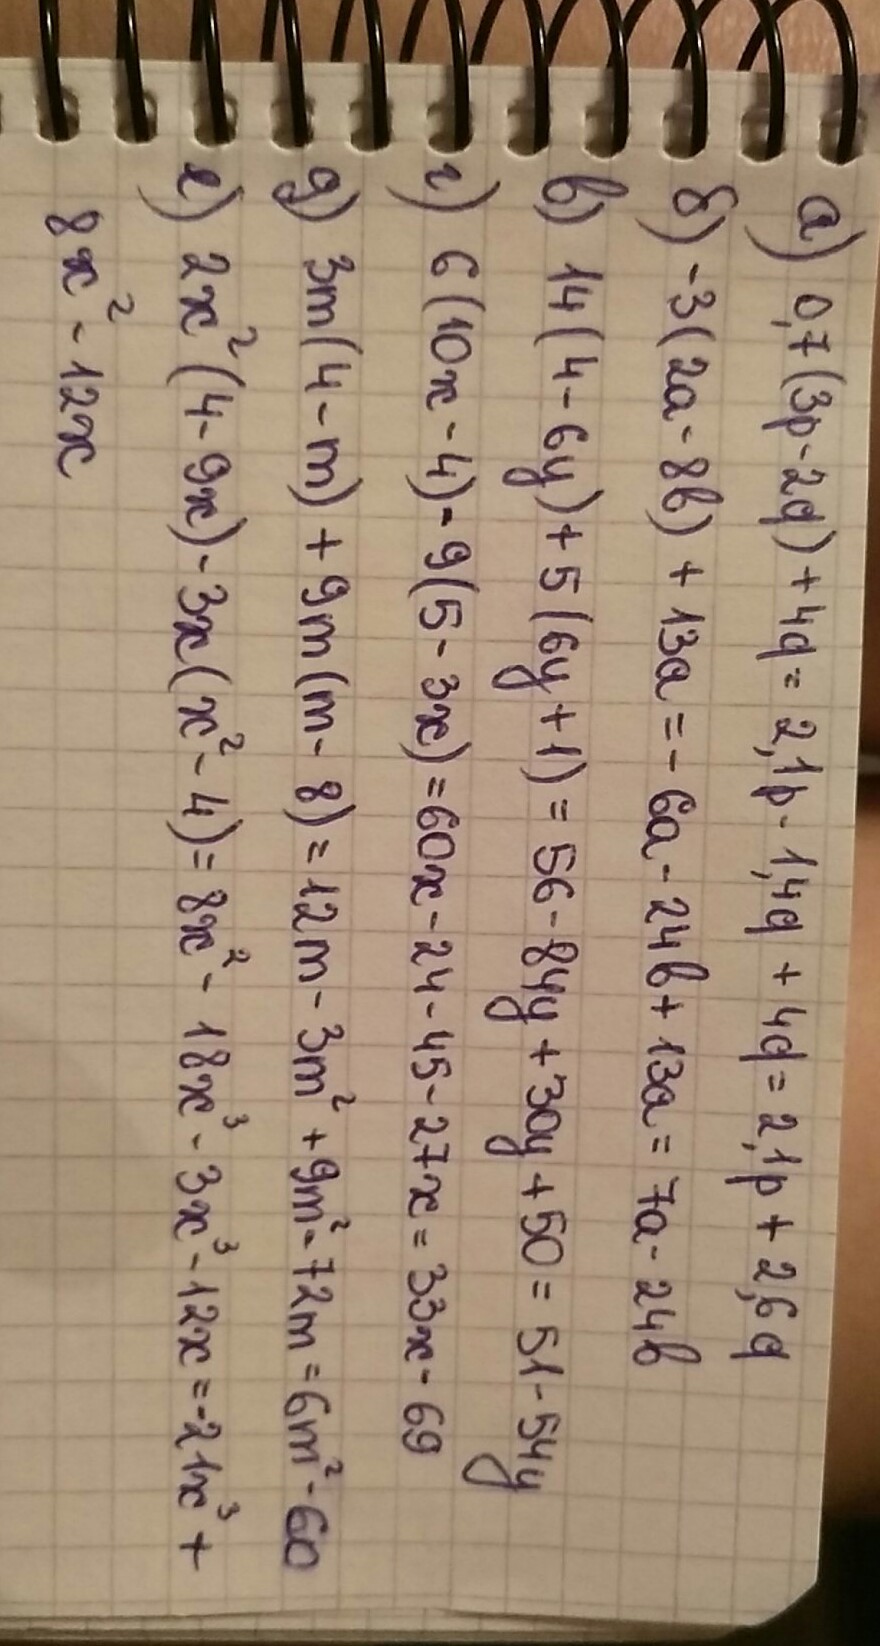 а) 0,7(3p-2q)+4q=2,1p-1,4q+4q=2,1p+2,6q
б) -3(2a-8b)+13a=-6a-24b+13a=7a-24b
в) 14(4-6y)+5(6y+1)=56-84y+30y+50=51-54y
г) 6(10x-4)-9(5-3x)=60x-24-45-27x=33x-69
д) 3m(4-m)+9m(m-8)=12m-3m²+9m²-72m=6m²-60
е) 2x²(4-9x)-3x(x²-4)=8x²-18x³-3x³-12x=-21x³+
8x²-12x